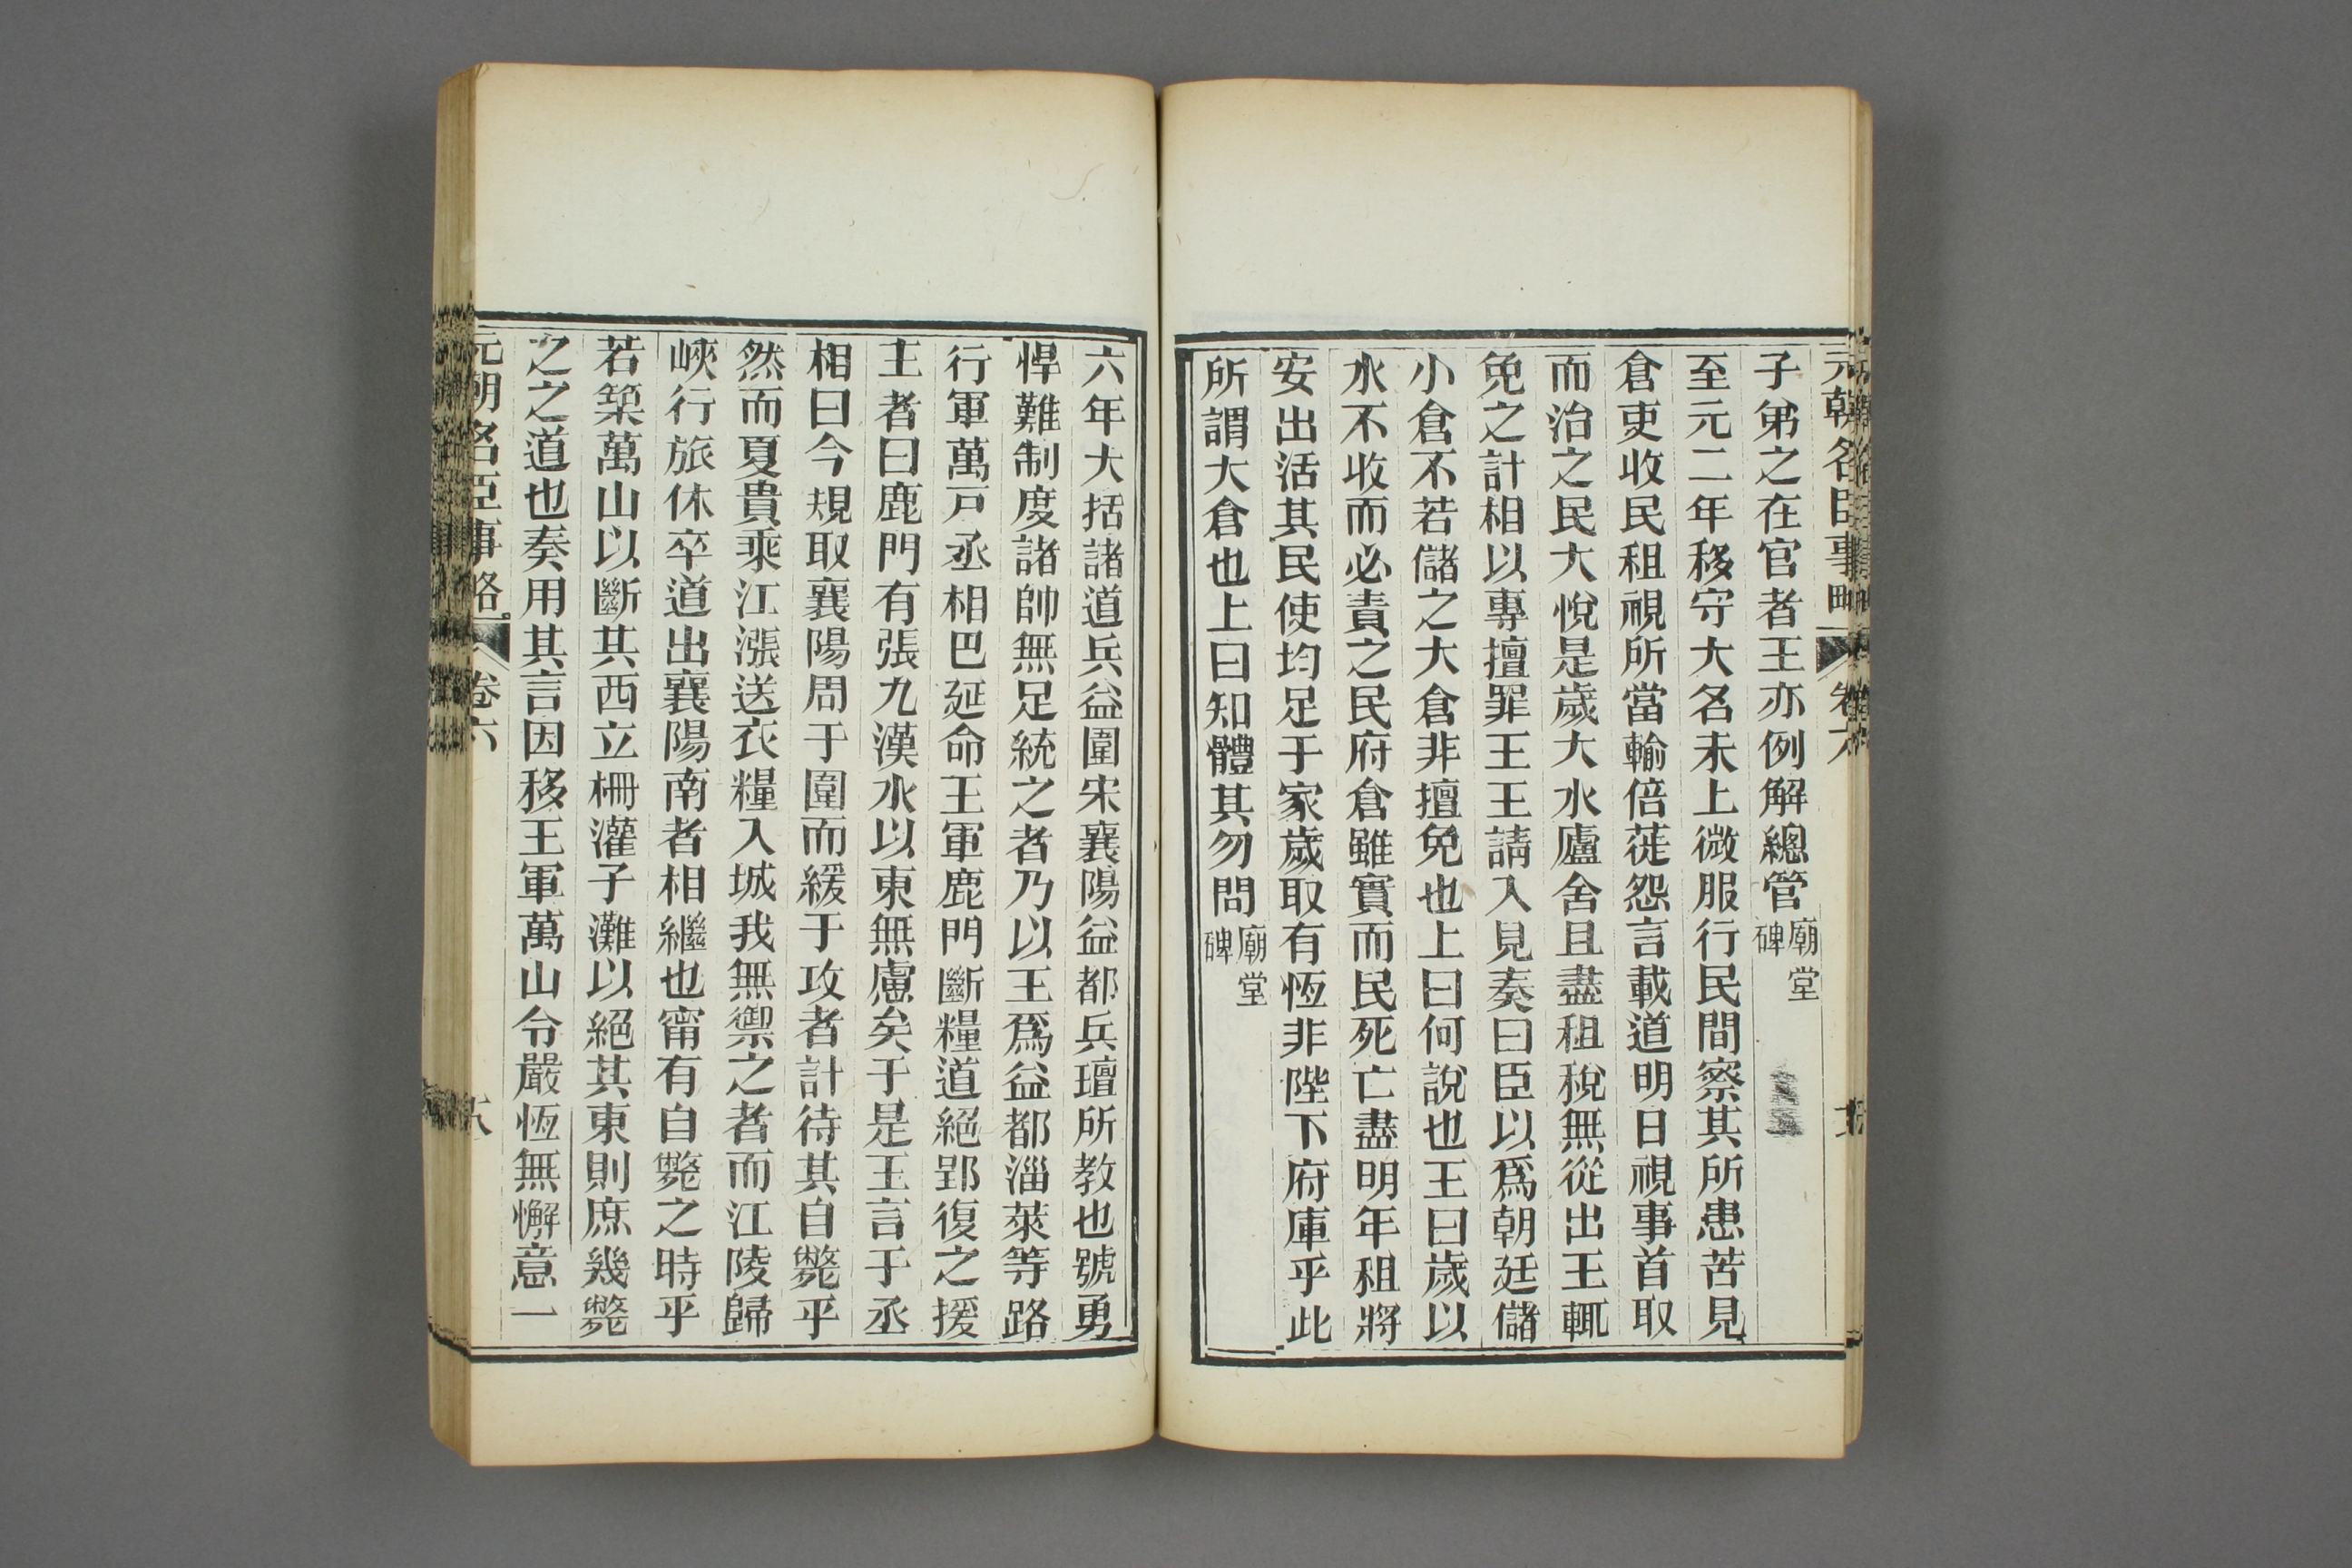 元朝名臣事略 卷六
子弟之在官者王亦例解總管廟堂碑
至元二年移守大名未上微服行民間察其所患苦見
倉吏收民租視所當輸倍蓰怨言載道明日視事首取
而治之民大悅是歲大水廬舍且盡租稅無從出王輒
免之計相以專擅罪王王請入見奏曰臣以爲朝廷儲
小倉不若儲之大倉非擅免也上曰何說也王曰歲以
水不收而必責之民府倉雖實而民死亡盡明年租將
安出活其民使均足于家歲取有恆非陛下府庫乎此
所謂大倉也上曰知體其勿問廟堂碑
六年大括諸道兵益圍宋襄陽益都兵璮所教也號勇
悍難制度諸帥無足統之者乃以王爲益都淄萊等路
行軍萬戸丞相巴延命王軍鹿門斷糧道絕郢復之援
王者曰鹿門有張九漢水以東無慮矣于是王言于丞
相曰今規取襄陽周于圍而緩于攻者計待其自斃乎
然而夏貴乘江漲送衣糧入城我無禦之者而江陵歸
峽行旅休卒道出襄陽南者相繼也甯有自斃之時乎
若築萬山以斷其西立柵灌子灘以絕其東則庶幾斃
之之道也奏用其言因移王軍萬山令嚴恆無懈意一
元朝名臣事略 卷六